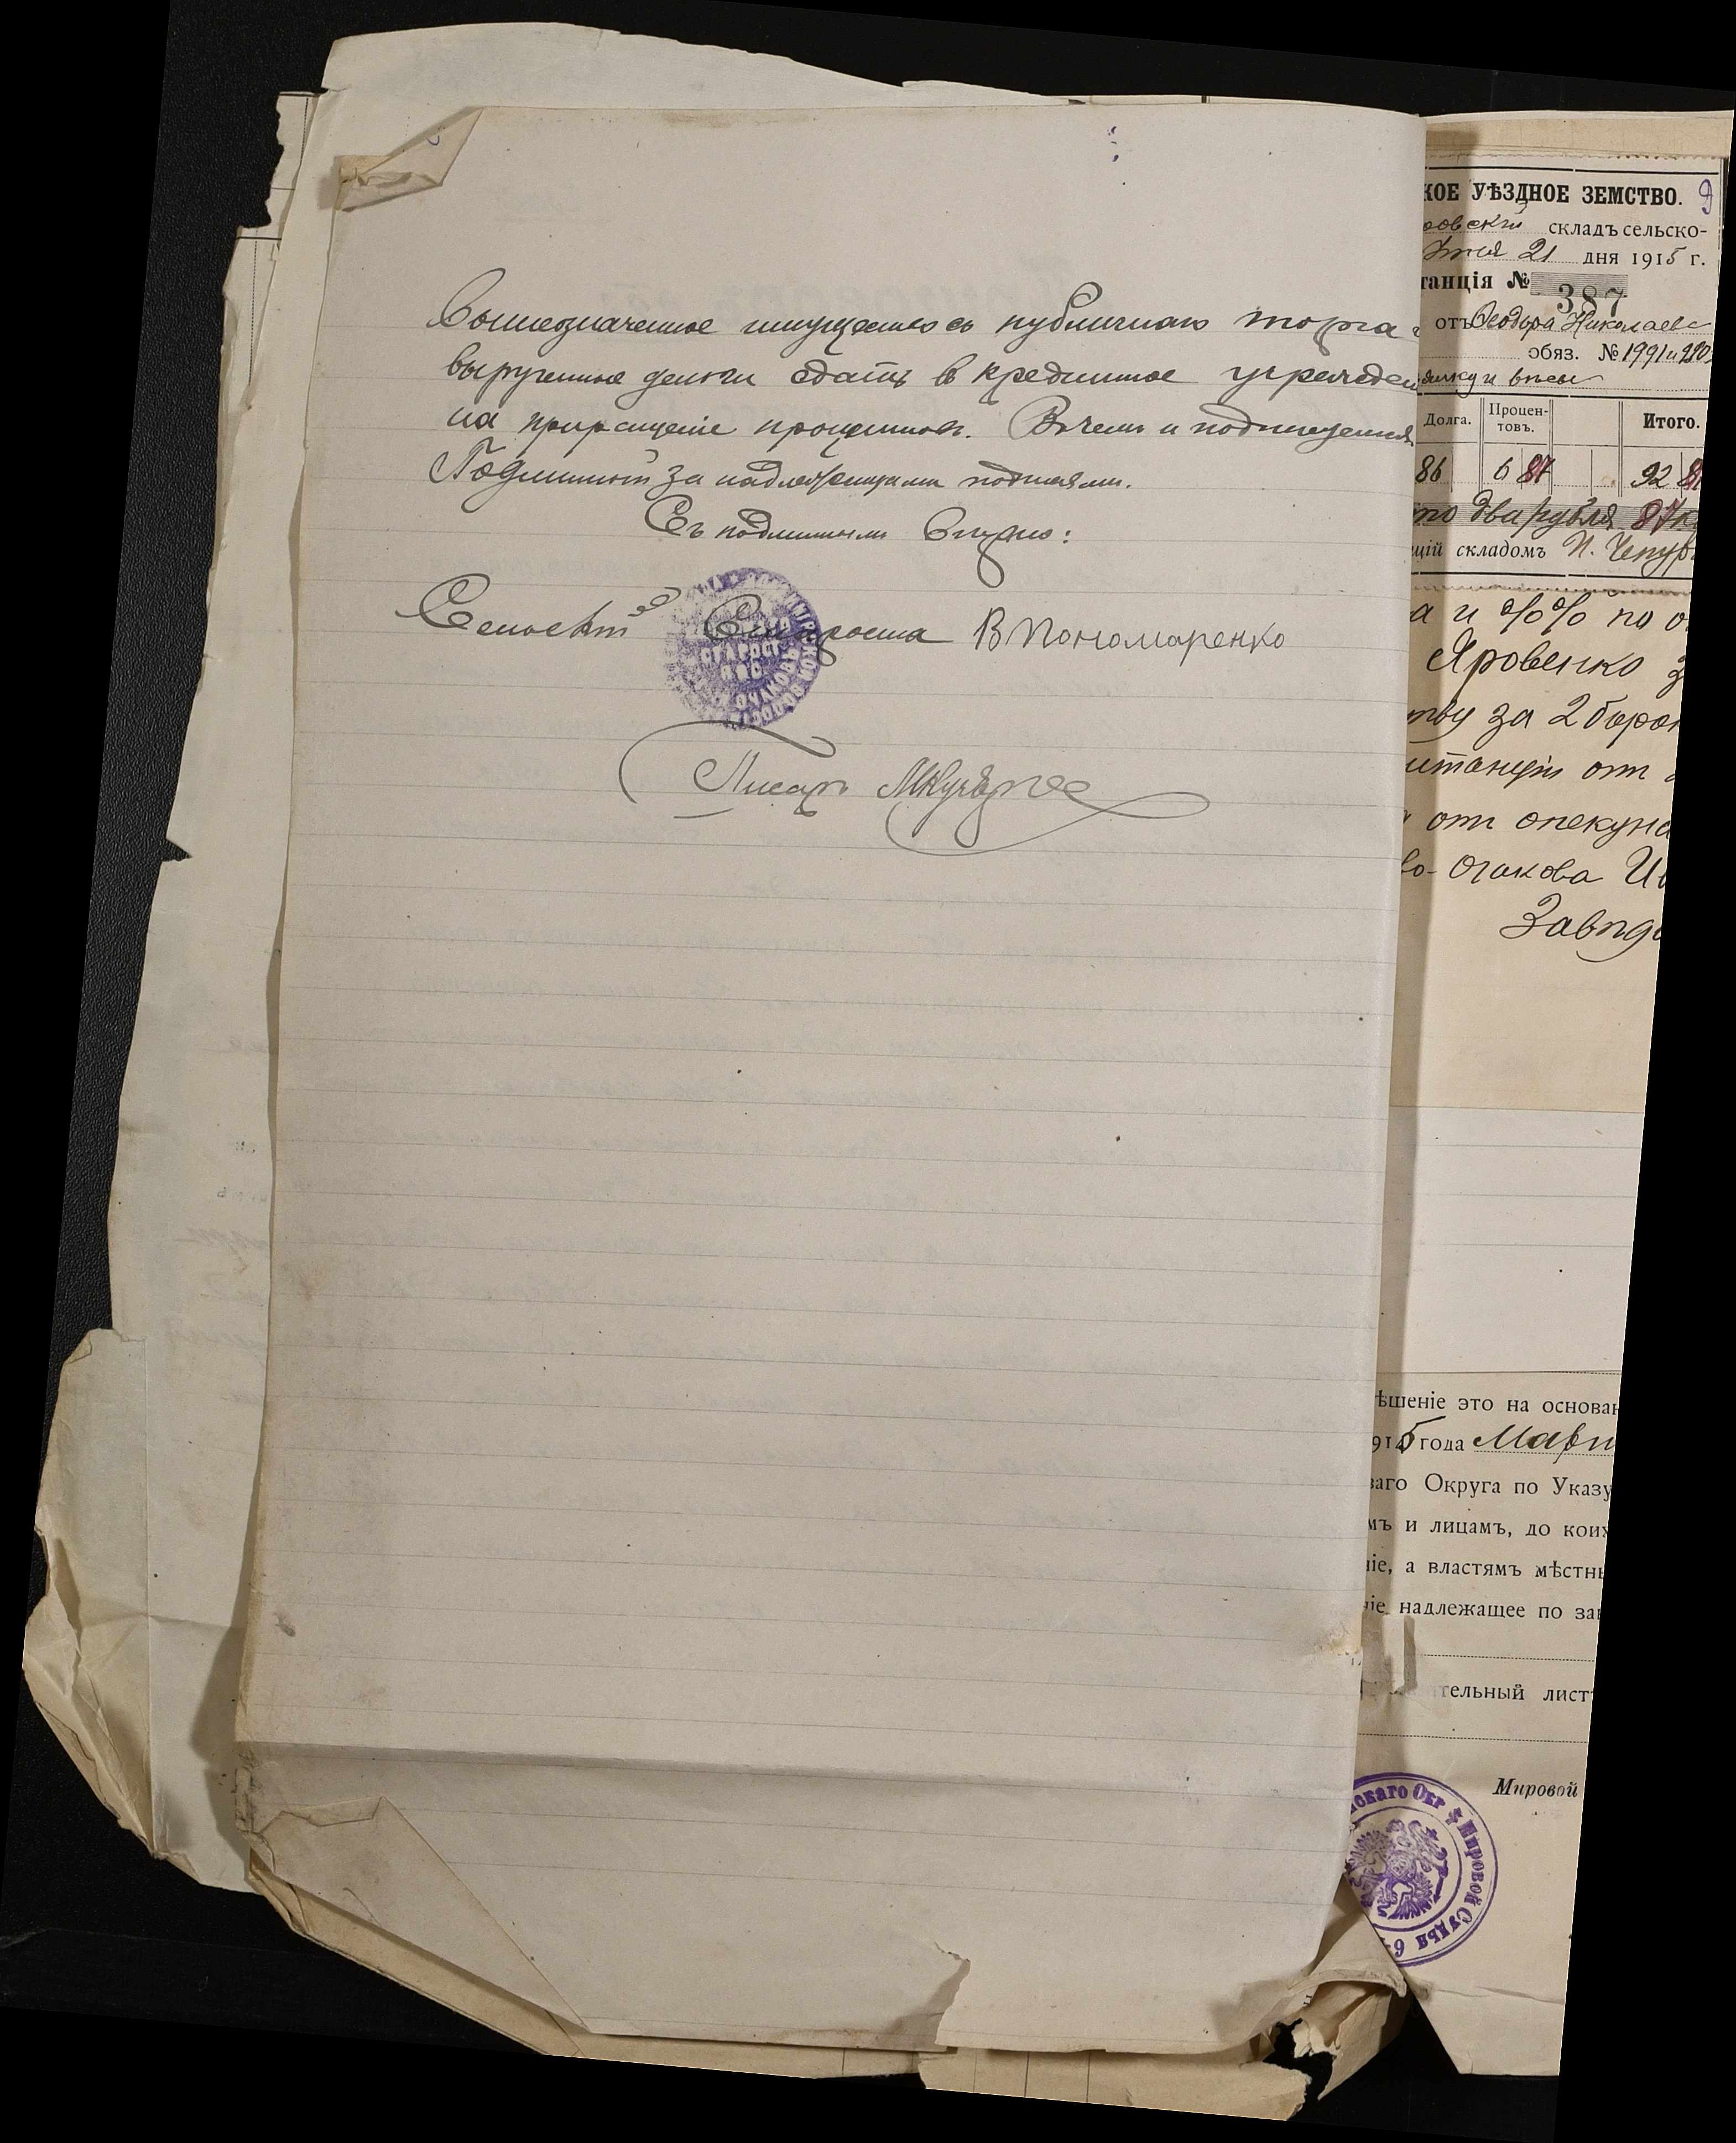 Вышеозначенное имущество съ публичнаго торга
вырученные деньги сдать в кредитное учрежден
на приращеніе процентов. В чемъ и подписуемся
Подлинный за надлежащими подписями.
Съ подлиннымъ вѣрно:
Сельскій Староста В Пономаренко
СТАРОСТ
Писарь
КОЕ УѢЗДНОЕ ЗЕМСТВО. 9
овскій складъ сельско-
21 дня 1915 г.
танція № 387
отъ Ѳеодора Николаев
обяз. № 1991 и
и вѣсы
Долга. Процен-товъ. Итого.
86 6 87 92 87
то два рубля 87 к
щій складомъ П. Чепур
а и %% по о
Яровенко з
тву за 2 борон
итанціи от
от опекуна
во-Очакова И
Завѣд
ѣшеніе это на основан
915 года Март
ваго Округа по Указу
мъ и лицамъ, до коих
ніе, а властямъ мѣстны
ніе надлежащее по зак
тельный листъ
Мировой
скаго Окр Мировой Судья 6